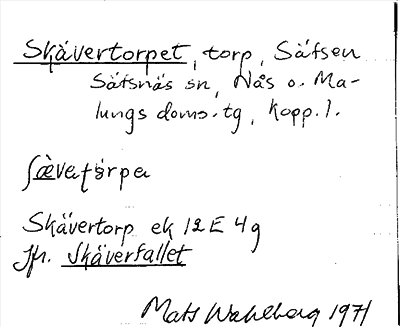 Skävertorpet, torp, Säfsen
Säfsnäs sn, Nås o. Ma-
lungs doms.tg, Kopp. l.
Skävertorp ek 12E 4g
Jfr. Skäverfallet
Mats Wahlberg 1971